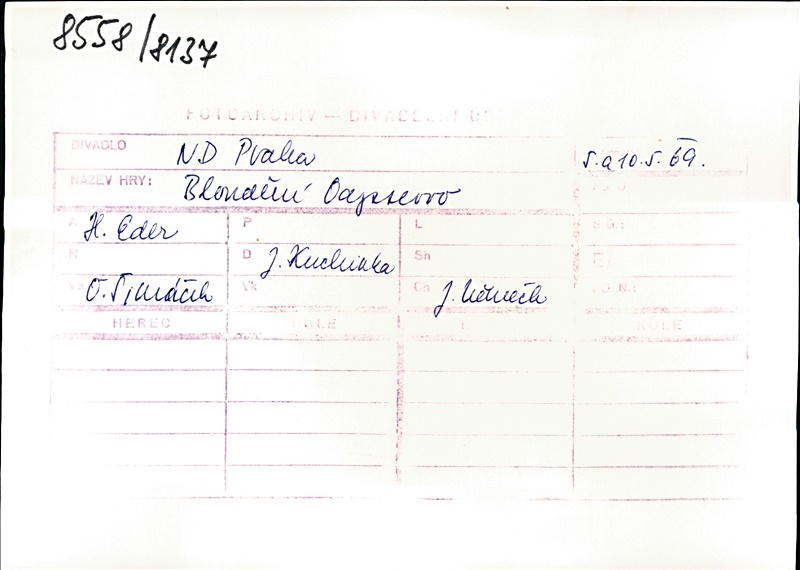 8558/8137
FOTOARCHIV — DIVADELNÍ
DIVADLO ND Praha 5. a 10. 5. 69.
NÁZEV HRY: Bloudění Odysseovo
A H. Eder P L SG.:
R D J. Kuchinka Sh
O. Šimáček Vk Ch J. Němeček
HEREC ROLE